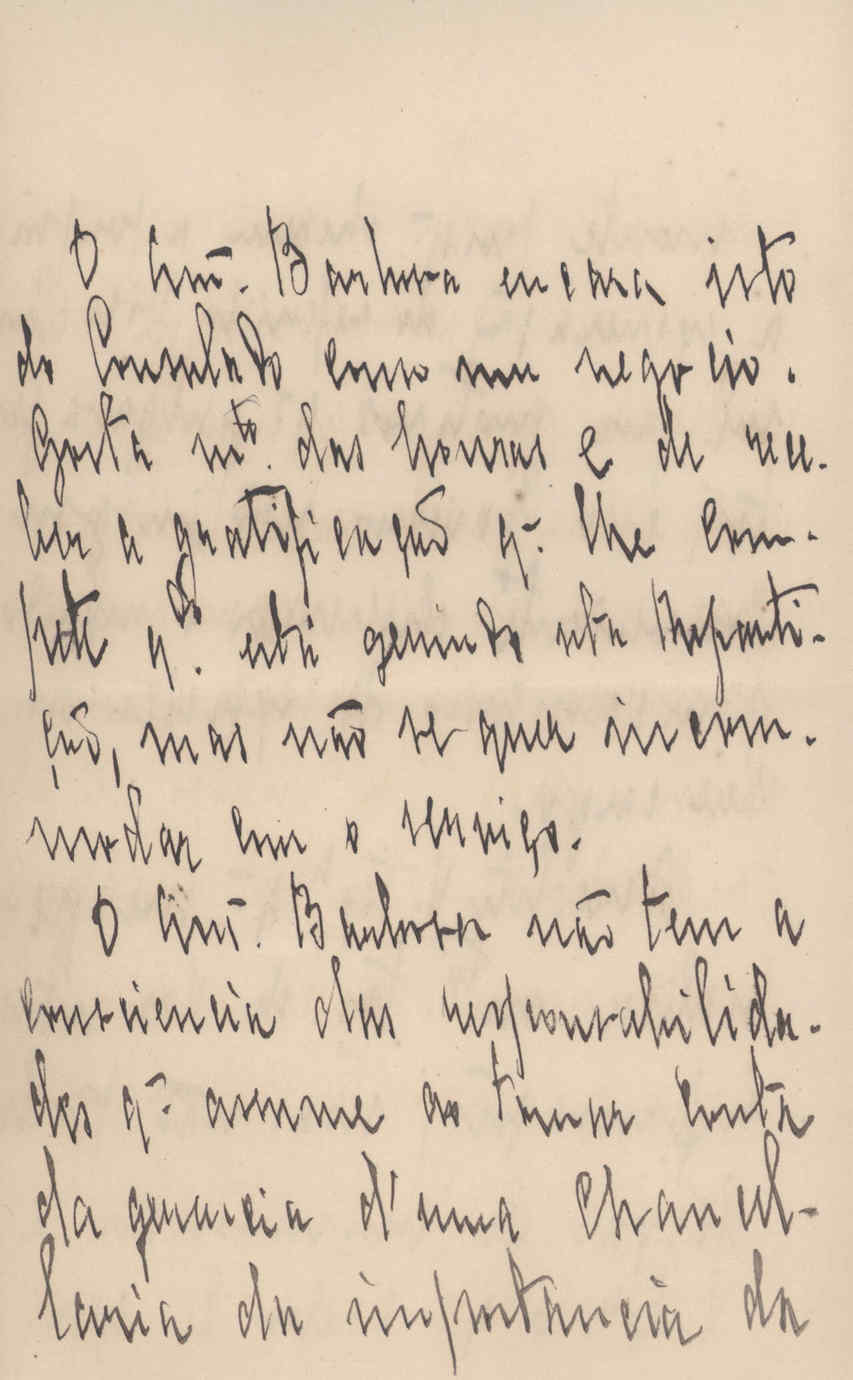 O Gmº. Barbosa encara isto
do Consulado como um negocio.
Gosta mto. das honras e de rece-
ber a gratificação q. lhe com-
pete qdo. está gerindo esta Reparti-
ção, mas não se quer incom-
modar com o serviço.
O Barbosa não tem a
consciencia das responsabilida-
des q. assume ao tomar conta
da gerencia d'uma Chancel-
laria da importancia da